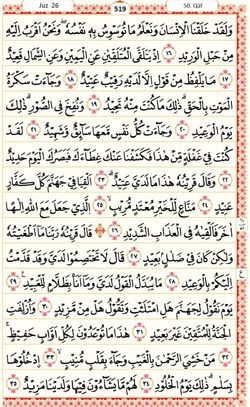 Juz 26
519
50. Qāf
وَلَقَدۡ خَلَقۡنَا الۡاِنۡسَانَ وَنَعۡلَمُ مَا تُوَسۡوِسُ بِهٖ نَفۡسُهٗ ۖ وَنَحۡنُ اَقۡرَبُ اِلَيۡهِ
مِنۡ حَبۡلِ الۡوَرِيۡدِ ۱٦ اِذۡ يَتَلَقَّى الۡمُتَلَقِّيٰنِ عَنِ الۡيَمِيۡنِ وَعَنِ الشِّمَالِ قَعِيۡدٌ
۱۷ مَا يَلۡفِظُ مِنۡ قَوۡلٍ اِلَّا لَدَيۡهِ رَقِيۡبٌ عَتِيۡدٌ ۱۸ وَجَآءَتۡ سَكۡرَةُ
الۡمَوۡتِ بِالۡحَـقِّ‌ ؕ ذٰلِكَ مَا كُنۡتَ مِنۡهُ تَحِيۡدُ ۱۹ وَنُفِخَ فِى الصُّوۡرِ‌ ؕ ذٰلِكَ
يَوۡمُ الۡوَعِيۡدِ ۲۰ وَجَآءَتۡ كُلُّ نَفۡسٍ مَّعَهَا سَآٮِٕقٌ وَّشَهِيۡدٌ ۲۱ لَقَدۡ
كُنۡتَ فِىۡ غَفۡلَةٍ مِّنۡ هٰذَا فَكَشَفۡنَا عَنۡكَ غِطَآءَكَ فَبَصَرُكَ الۡيَوۡمَ حَدِيۡدٌ
۲۲ وَقَالَ قَرِيۡـنُهٗ هٰذَا مَا لَدَىَّ عَتِيۡدٌ ۲۳ اَلۡقِيَا فِىۡ جَهَنَّمَ كُلَّ كَفَّارٍ
عَنِيۡدٍ ۲٤ مَّنَّاعٍ لِّلۡخَيۡرِ مُعۡتَدٍ مُّرِيۡبٍ ۲٥ اۨلَّذِىۡ جَعَلَ مَعَ اللّٰهِ اِلٰهًا
اٰخَرَ فَاَلۡقِيٰهُ فِى الۡعَذَابِ الشَّدِيۡدِ ۲٦ قَالَ قَرِيۡنُهٗ رَبَّنَا مَاۤ اَطۡغَيۡتُهٗ
وَلٰكِنۡ كَانَ فِىۡ ضَلٰلٍۢ بَعِيۡدٍ ۲۷ قَالَ لَا تَخۡتَصِمُوۡا لَدَىَّ وَقَدۡ قَدَّمۡتُ
اِلَيۡكُمۡ بِالۡوَعِيۡدِ ۲۸ مَا يُبَدَّلُ الۡقَوۡلُ لَدَىَّ وَمَاۤ اَنَا بِظَلَّامٍ لِّلۡعَبِيۡدِ ۲۹
يَوۡمَ نَقُوۡلُ لِجَهَـنَّمَ هَلِ امۡتَلَـئۡتِ وَتَقُوۡلُ هَلۡ مِنۡ مَّزِيۡدٍ ۳۰ وَاُزۡلِفَتِ
الۡجَـنَّةُ لِلۡمُتَّقِيۡنَ غَيۡرَ بَعِيۡدٍ ۳۱ هٰذَا مَا تُوۡعَدُوۡنَ لِكُلِّ اَوَّابٍ حَفِيۡظٍ‌ۚ
۳۲ مَنۡ خَشِىَ الرَّحۡمٰنَ بِالۡغَيۡبِ وَجَآءَ بِقَلۡبٍ مُّنِيۡبِ ۳۳ اۨدۡخُلُوۡهَا
بِسَلٰمٍ‌ؕ ذٰلِكَ يَوۡمُ الۡخُلُوۡدِ ۳٤ لَهُمۡ مَّا يَشَآءُوۡنَ فِيۡهَا وَلَدَيۡنَا مَزِيۡدٌ ۳٥